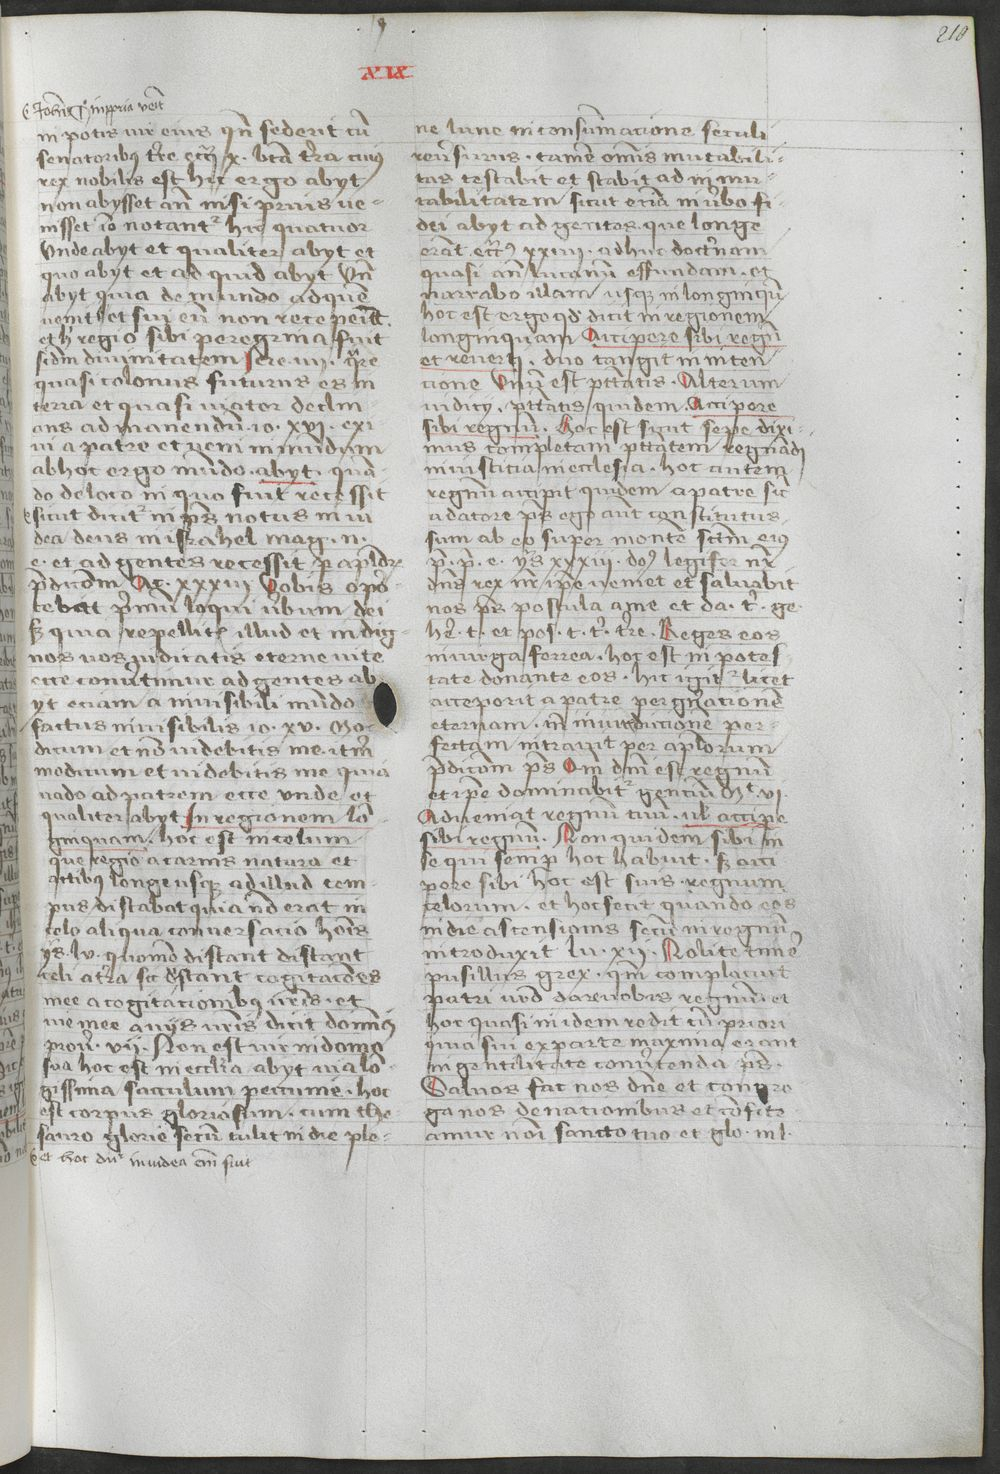 210
XIX
Joh̄ i. in ppria venit
ni potis vir eius qn̄ sederit cū
senatoribus tr̄e eccī x. btā t̄ra cuius
rex nobilis est hic ergo abyt
non abysset aūt nisi prius ve-
nisset iō notant᷑ hic quatuor
Vnde abyt et qualiter abyt et
quo abyt et ad quid abyt Vn̄
abyt quia de mundo ad quē
venit et sui eū non recepeīt
et h̓ regio sibi peregrina fuit
scdm divinitatem Jere. iiij. q̄re
quasi colonus futurus es in
terra et quasi viator declin
ans ad manendū. io. xvi. exi-
ui a patre et veni in mūdum
ab hoc ergo mūdo. abyt. quā-
do de loco in quo fuit recessit
sicut dicit᷑ in ps̄ notus in iu
dea deus in israhel mag. n.
e. et ad gentes recessit p aplōꝝ
p̄dicacōm Ac. xxxiii Vobis opor-
tebat p̄mū loqui v̓bum dei
sꝫ quia repellitis illud et indig-
nos vos iudicatis eterne vite
ecce conv̓timur ad gentes ab
yt eciam a invisibili mūdo
factus invisibilis io. xv. Mo-
dicum et nō videbitis me. itm̄
modicum et videbitis me quia
vado ad patrem ecce vnde et
qualiter abyt In regionem lō
ginquam. hoc est in celum
que regio a carnis natura et
actibus longe usque ad illud tem-
pus distabat quia nōd erat in
celo aliqua conversacio hoīs
ys̄. lv. quomō distant distant
celi a t̄ra sic distant cogitacōes
mee a cogitacionibus vr̄is. et
vie mee a vijs vr̄is dicit dominus
prov̓. vii. Non est vir in domo
sua hoc est in eccl̄ia abyt via lō-
gissima sacculum peccunie. hoc
est corpus gloriosum. cum the-
sauro glorie secū tulit in die ple-
et hoc dr̄ in iudea em̄ fuit
ne lune in consūmacione seculi
rev̓surus. tamē omīs mutabili-
tas restabit et stabit ad inmu-
tabilitatem sicut eciā in v̓bo fi-
dei abyt ad gentes. que longe
erāt. eccī xxiiii. adhuc doct̓nam
quasi añ lucanū effundam. et
narrabo illam usque in longinquū
hoc est ergo qd̓ dicit in regionem
longinquam Accipere sibi regnū
et reverti. duo tangit in inten
cione Vnū est ptātis. Alterum
iudicij. ptātis quidem. Accipere
sibi regnū. Hoc est sicut sepe dixi-
mus completam ptātem regnādi
in iusticia in ecclesia. hoc autem
regnū accipit quidem a patre sic̄
a datore ps̄ ego aūt constitutus
sum ab eo super montē scm̄ eius
p̄. p̄. e. ys̄ xxxiii. dn̄s legifer nr̄
dn̄s rex nr̄ ipe veniet et salvabit
nos ps̄ postula a me et da. t̄. ge.
he̓. t. et pos. t. t̄. tr̄e. Reges eos
in virga ferrea. hoc est in potes-
tate donante eos. hic igit᷑ licet
acceperit a patre per gnacionē
eternam. tn̄ in introduccionē per-
fectam intravit per aplōrum
p̄dicacōm ps̄ Qm̄ dn̄i est regnū
et ipe dominabit᷑ gentiū Mt vi.
Adveniat regnū tuū. vl̓ accipe
sibi regnū. Non quidem sibi in
se qui semp̄ hoc habuit. sꝫ acci
pere sibi hoc est suis regnum
celorum. et hoc fecit quando eos
in die ascensionis secū in regnū
introduxit lu. xij. Nolite timē
pusillus grex. qm̄ complacuit
patri vr̄o dare vobis regnū. et
hoc quasi in idem redit cū priori
quia sui ex parte maxima erant
in gentilitate conv̓tenda ps̄.
Salvos fac nos dn̄e et congre
ga nos de nacionibus et cōfite-
amur noī sancto tuo et glo. in l.